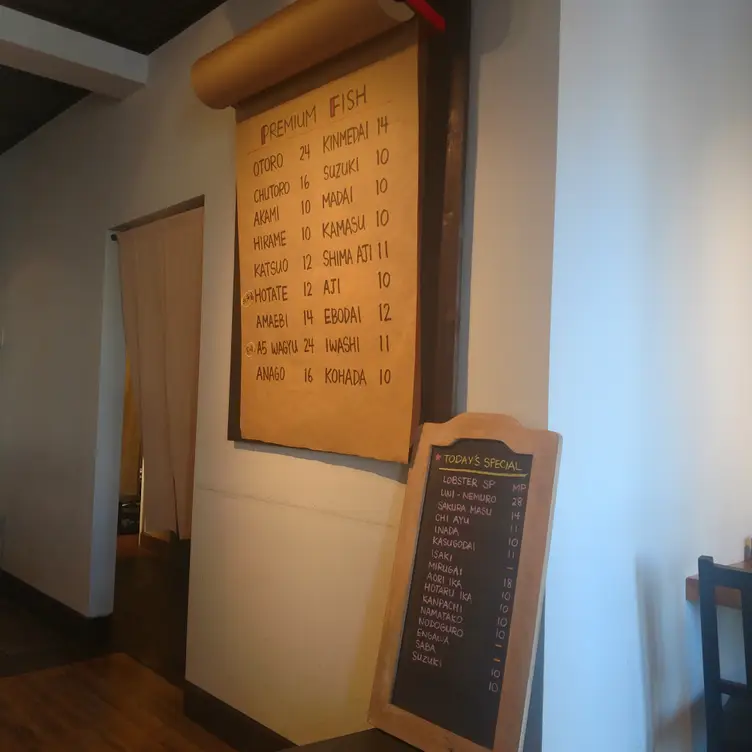 PREMIUM FISH
OTORO 24
CHUTORO 16
AKAMI 10
HIRAME 10
KATSUO 12
HOTATE 12
AMAEBI 14
A5 WAGYU 24
ANAGO 16
KINMEDAI 14
SUZUKI 10
MADAI 10
KAMASU 10
SHIMA AJI 11
AJI 10
EBODAI 12
IWASHI 11
KOHADA 10
TODAY'S SPECIAL
LOBSTER SP MP
UNI-NEMURO 28
SAKURA MASU 14
CHI AYU 11
INADA 10
KASUGODAI 11
ISAKI -
MIRUGAI 18
AORI IKA 10
HOTARU IKA 10
KANPACHI 10
NAMATAKO 10
NODOGURO -
ENGAWA -
SABA 10
SUZUKI 10